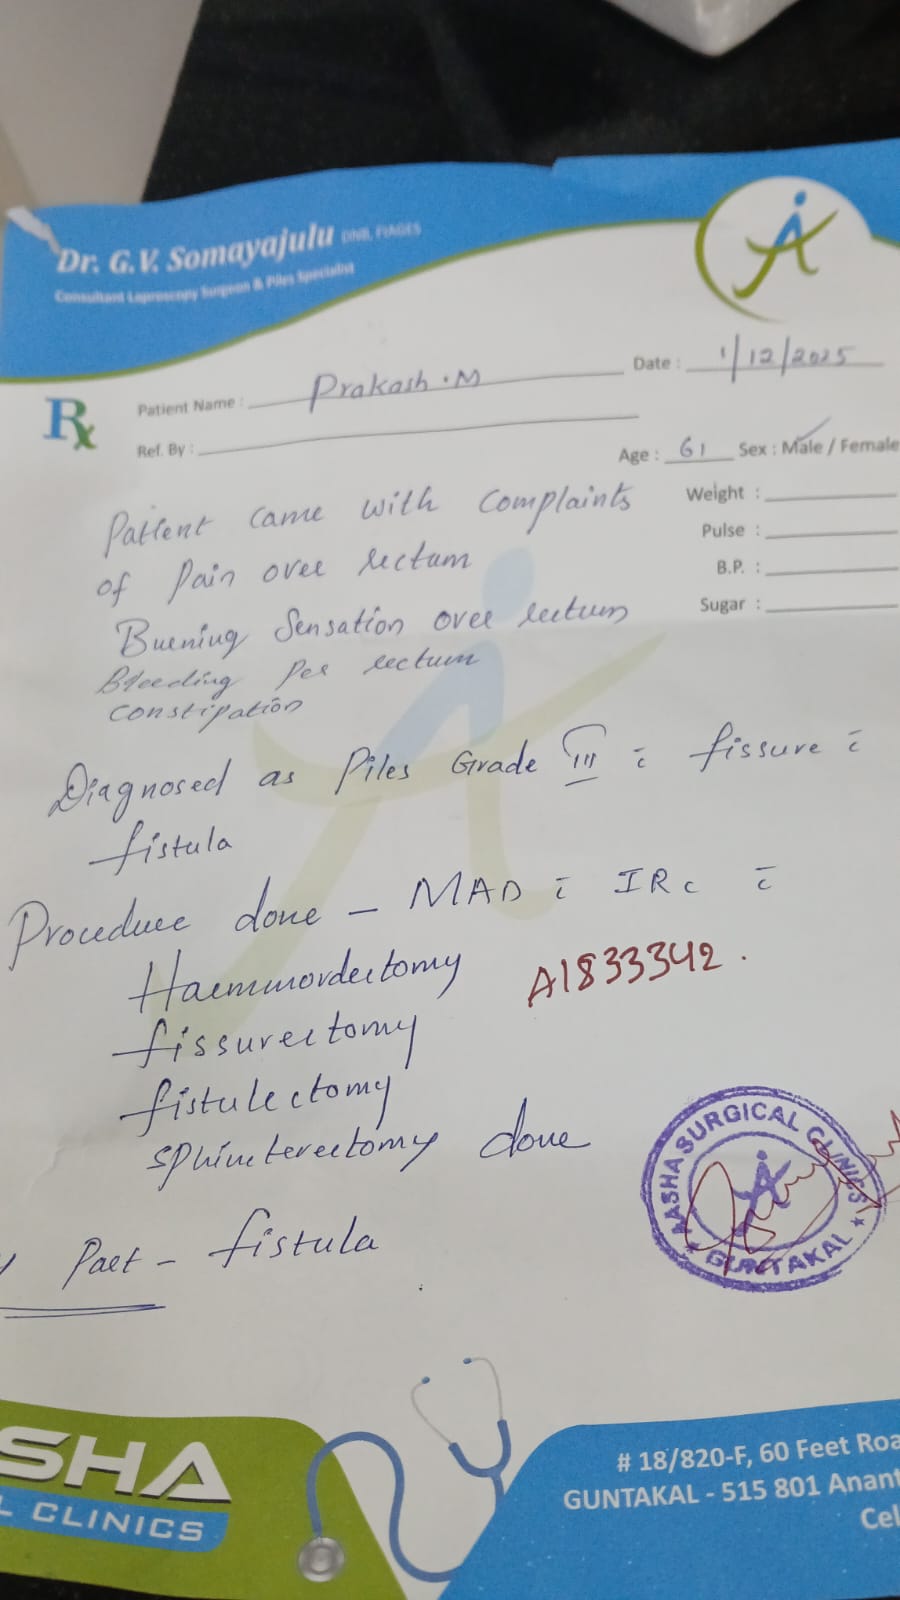 Dr. G.V. Somayajulu DNB, FIAGES
Consultant Laproscopy Surgeon & Piles Specialist
Date : 1/12/2025
Rx Patient Name : Prakash . M
Ref. By :
Age : 61 Sex : Male / Female
Weight :
Pulse :
B.P. :
Sugar :
Patient came with complaints
of Pain over rectum
Burning Sensation over rectum
Bleeding Per rectum
constipation
Diagnosed as Piles Grade III c̄ fissure c̄
fistula
Procedure done - MAD c̄ IRC c̄
Haemmordectomy
A1833342.
fissurectomy
fistulectomy
sphincterectomy done
Part - fistula
AASHA SURGICAL CLINICS
GUNTAKAL
SHA
L CLINICS
# 18/820-F, 60 Feet Roa
GUNTAKAL - 515 801 Anant
Cel